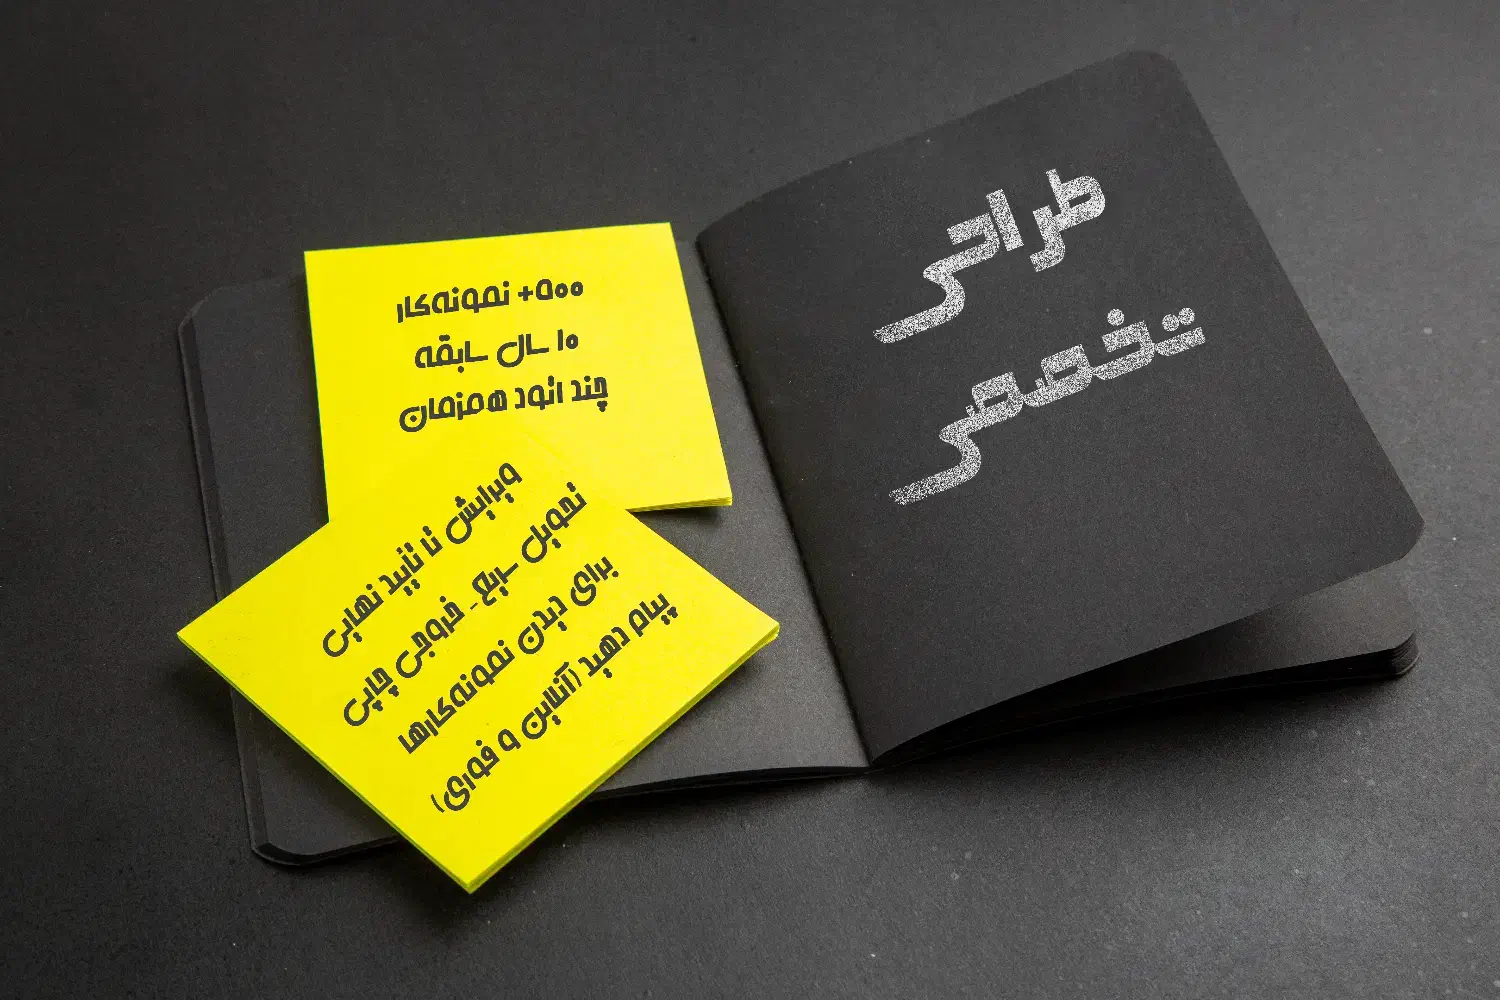 طراحی
تخصصی
+۵۰۰ نمونه‌کار
۱۰ سال سابقه
چند اتود همزمان
ویرایش تا تأیید نهایی
تحویل سریع - خروجی چاپی
برای دیدن نمونه‌کارها
پیام دهید (آنلاین و فوری)